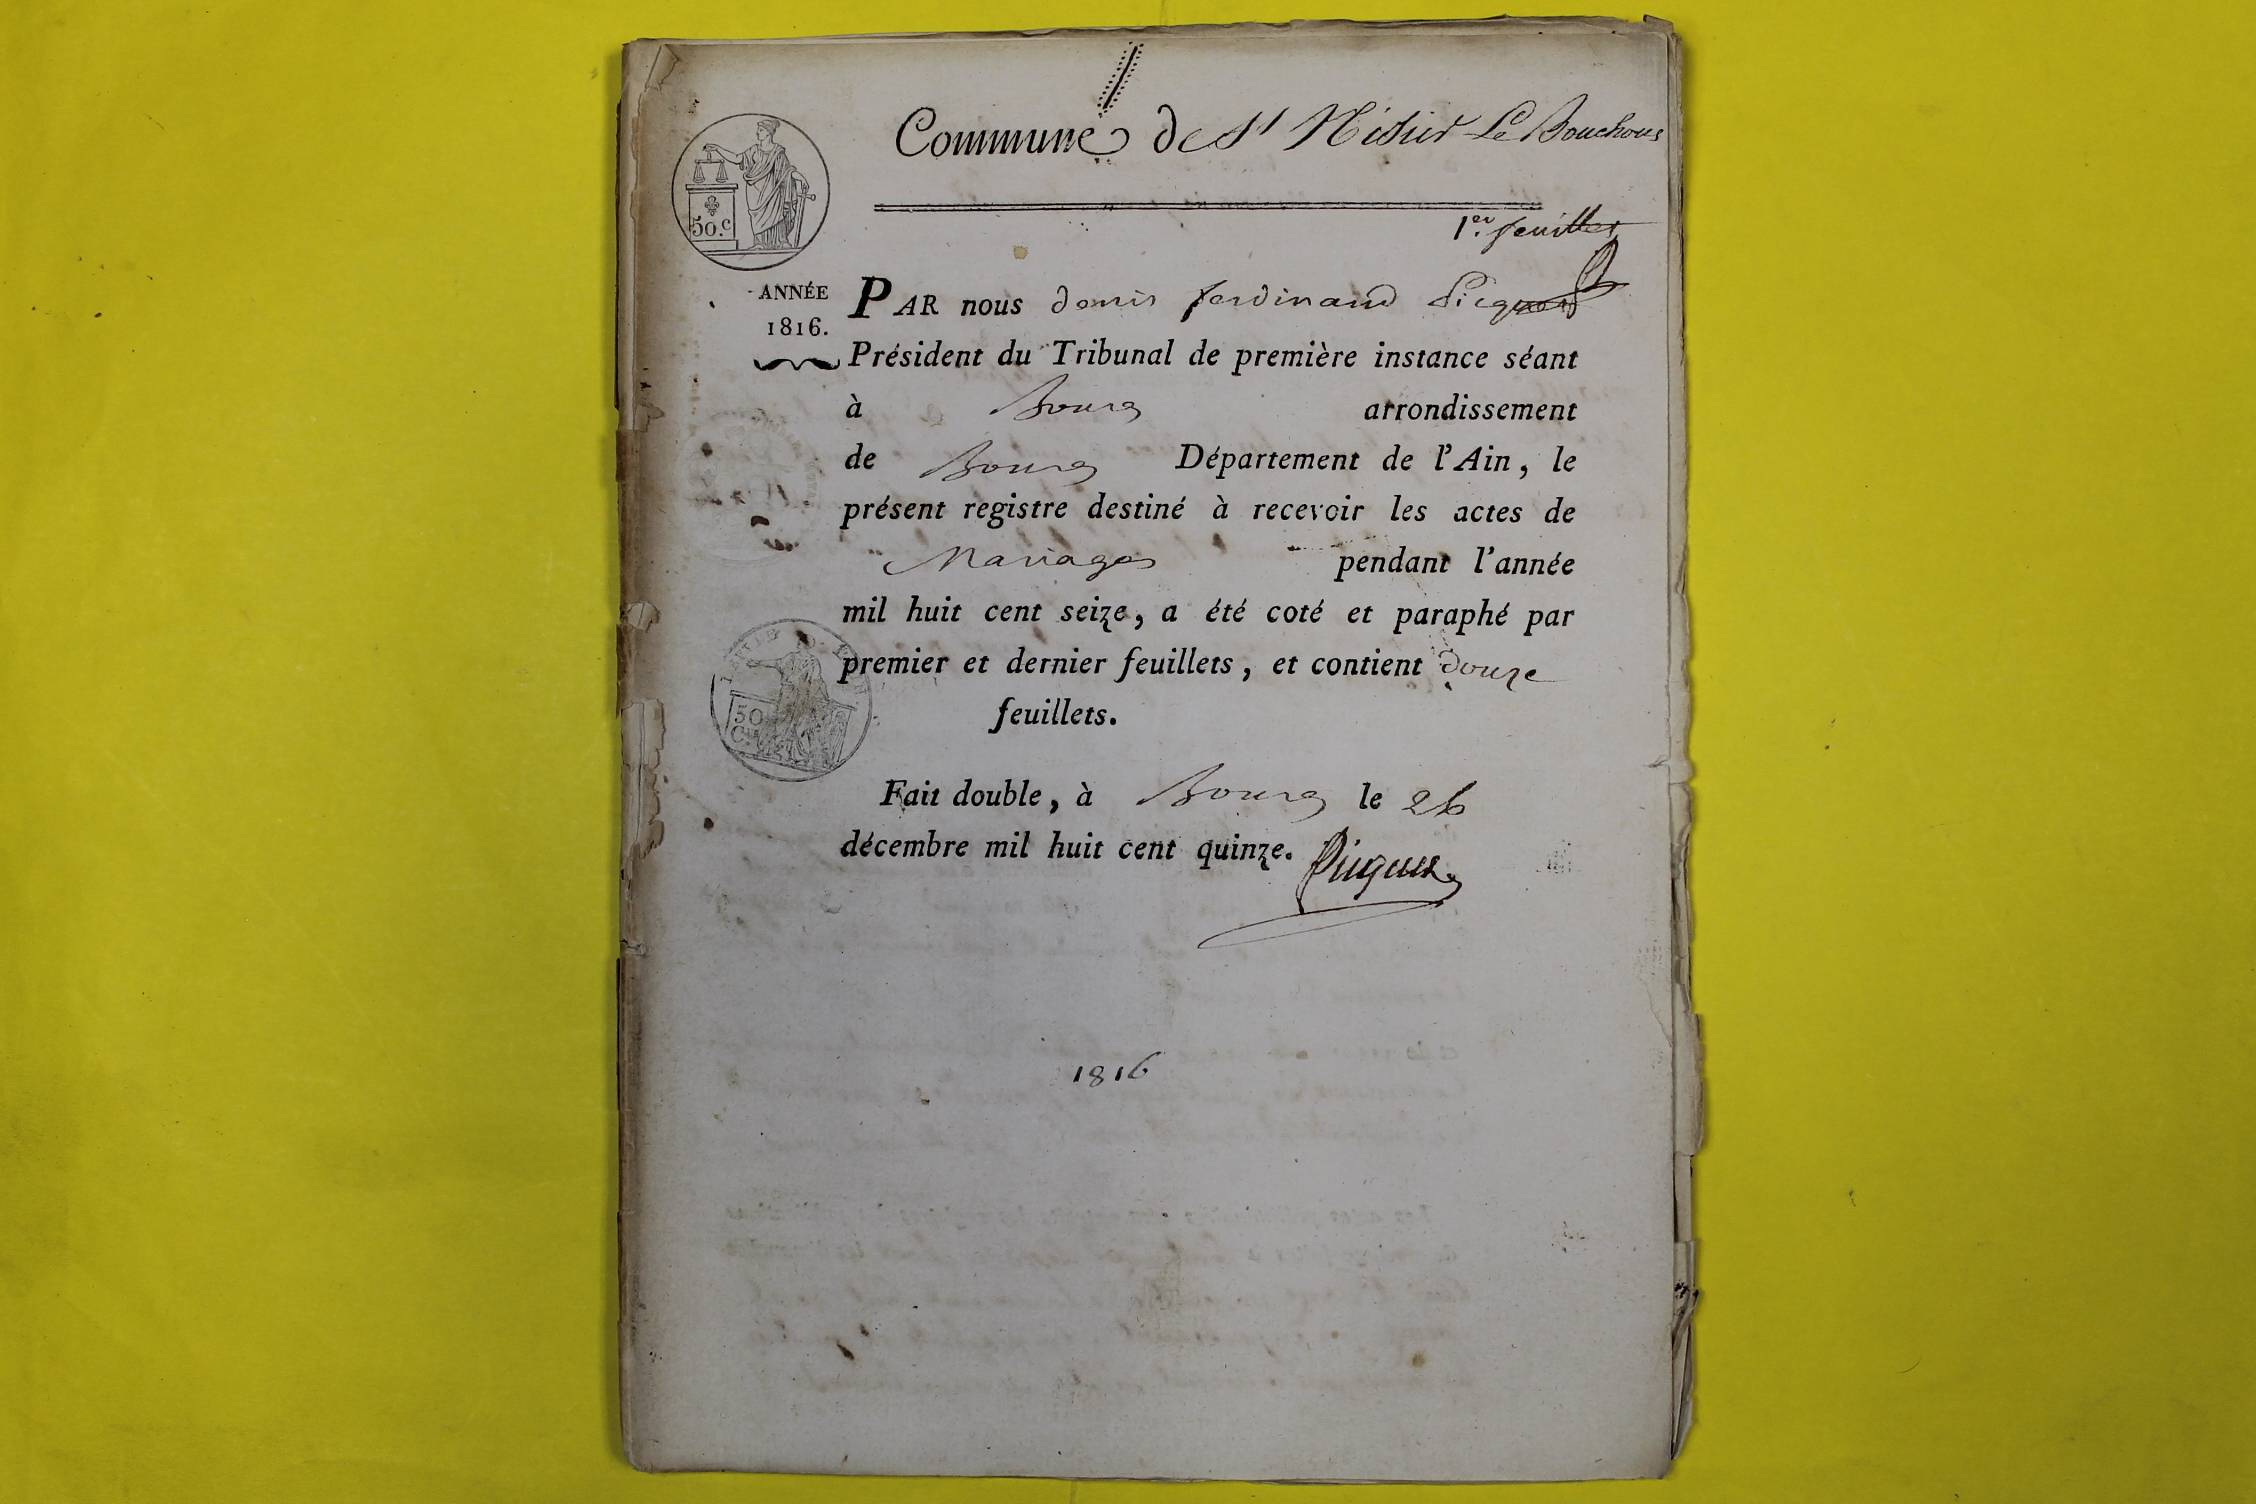 Commune de St Nisier Le Bouchoux
1er feuillet
50.c
ANNÉE
1816.
PAR nous denis ferdinand Picquet
Président du Tribunal de première instance séant
à Bourg arrondissement
de Bourg Département de l'Ain, le
présent registre destiné à recevoir les actes de
Mariages pendant l'année
mil huit cent seize, a été coté et paraphé par
premier et dernier feuillets, et contient douze
feuillets.
50
C.
Fait double, à Bourg le 26
décembre mil huit cent quinze. Picquet
1816